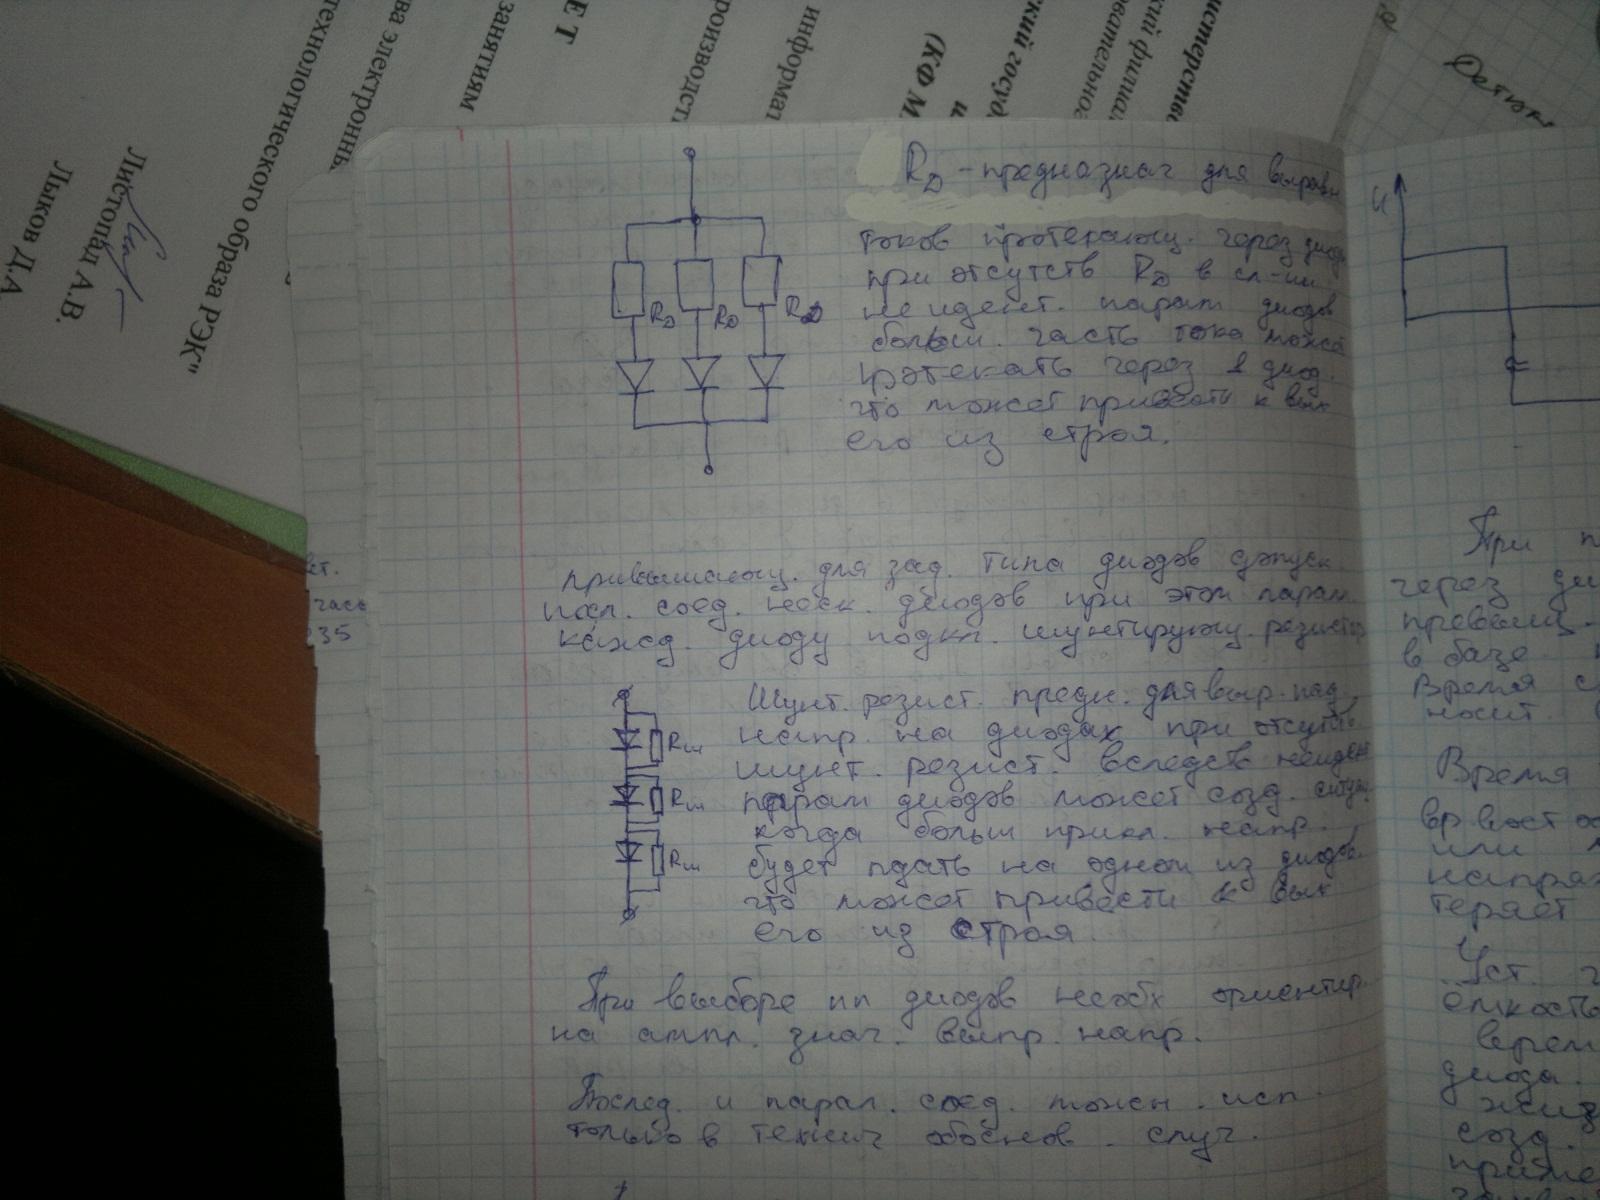 технологического образа РЭК"
Листопад А.В.
Лыков Д.А
ва электроннь
занятиям
Е Т
роизводст
информат
(КФ М
и
кий госуд
кий филиа
овательно
истерст
R_D - предназнач для выравн
токов протекающ. через диод
при отсутств R_D в сл-ии
не идент. парам диодов
больш. часть тока может
протекать через 1 диод.
что может привести к вых
его из строя.
R_D R_D R_D
превышающ. для зад. типа диодов допуск.
посл. соед. неск. диодов при этом парал.
кажд. диоду подкл. шунтирующ. резистор
Шунт. резист. предн. для выр. пад.
напр. на диодах при отсутств.
шунт. резист. вследств неидент
парам диодов может созд. ситуац
когда больш прикл. напр.
будет пдать на одном из диодов.
что может привести к вых
его из строя.
Rш
Rш
Rш
При выборе пп диодов необх ориентир.
на ампл. знач. выпр. напр.
Послед. и парал. соед. можн. исп.
только в технич обоснов. случ.
ет.
часс
235
U
При п
через ди
превыш.
в базе
Время с
носит.
Время
или
напряж
теряет
Уст.
ёмкость
врем
диода.
созд.